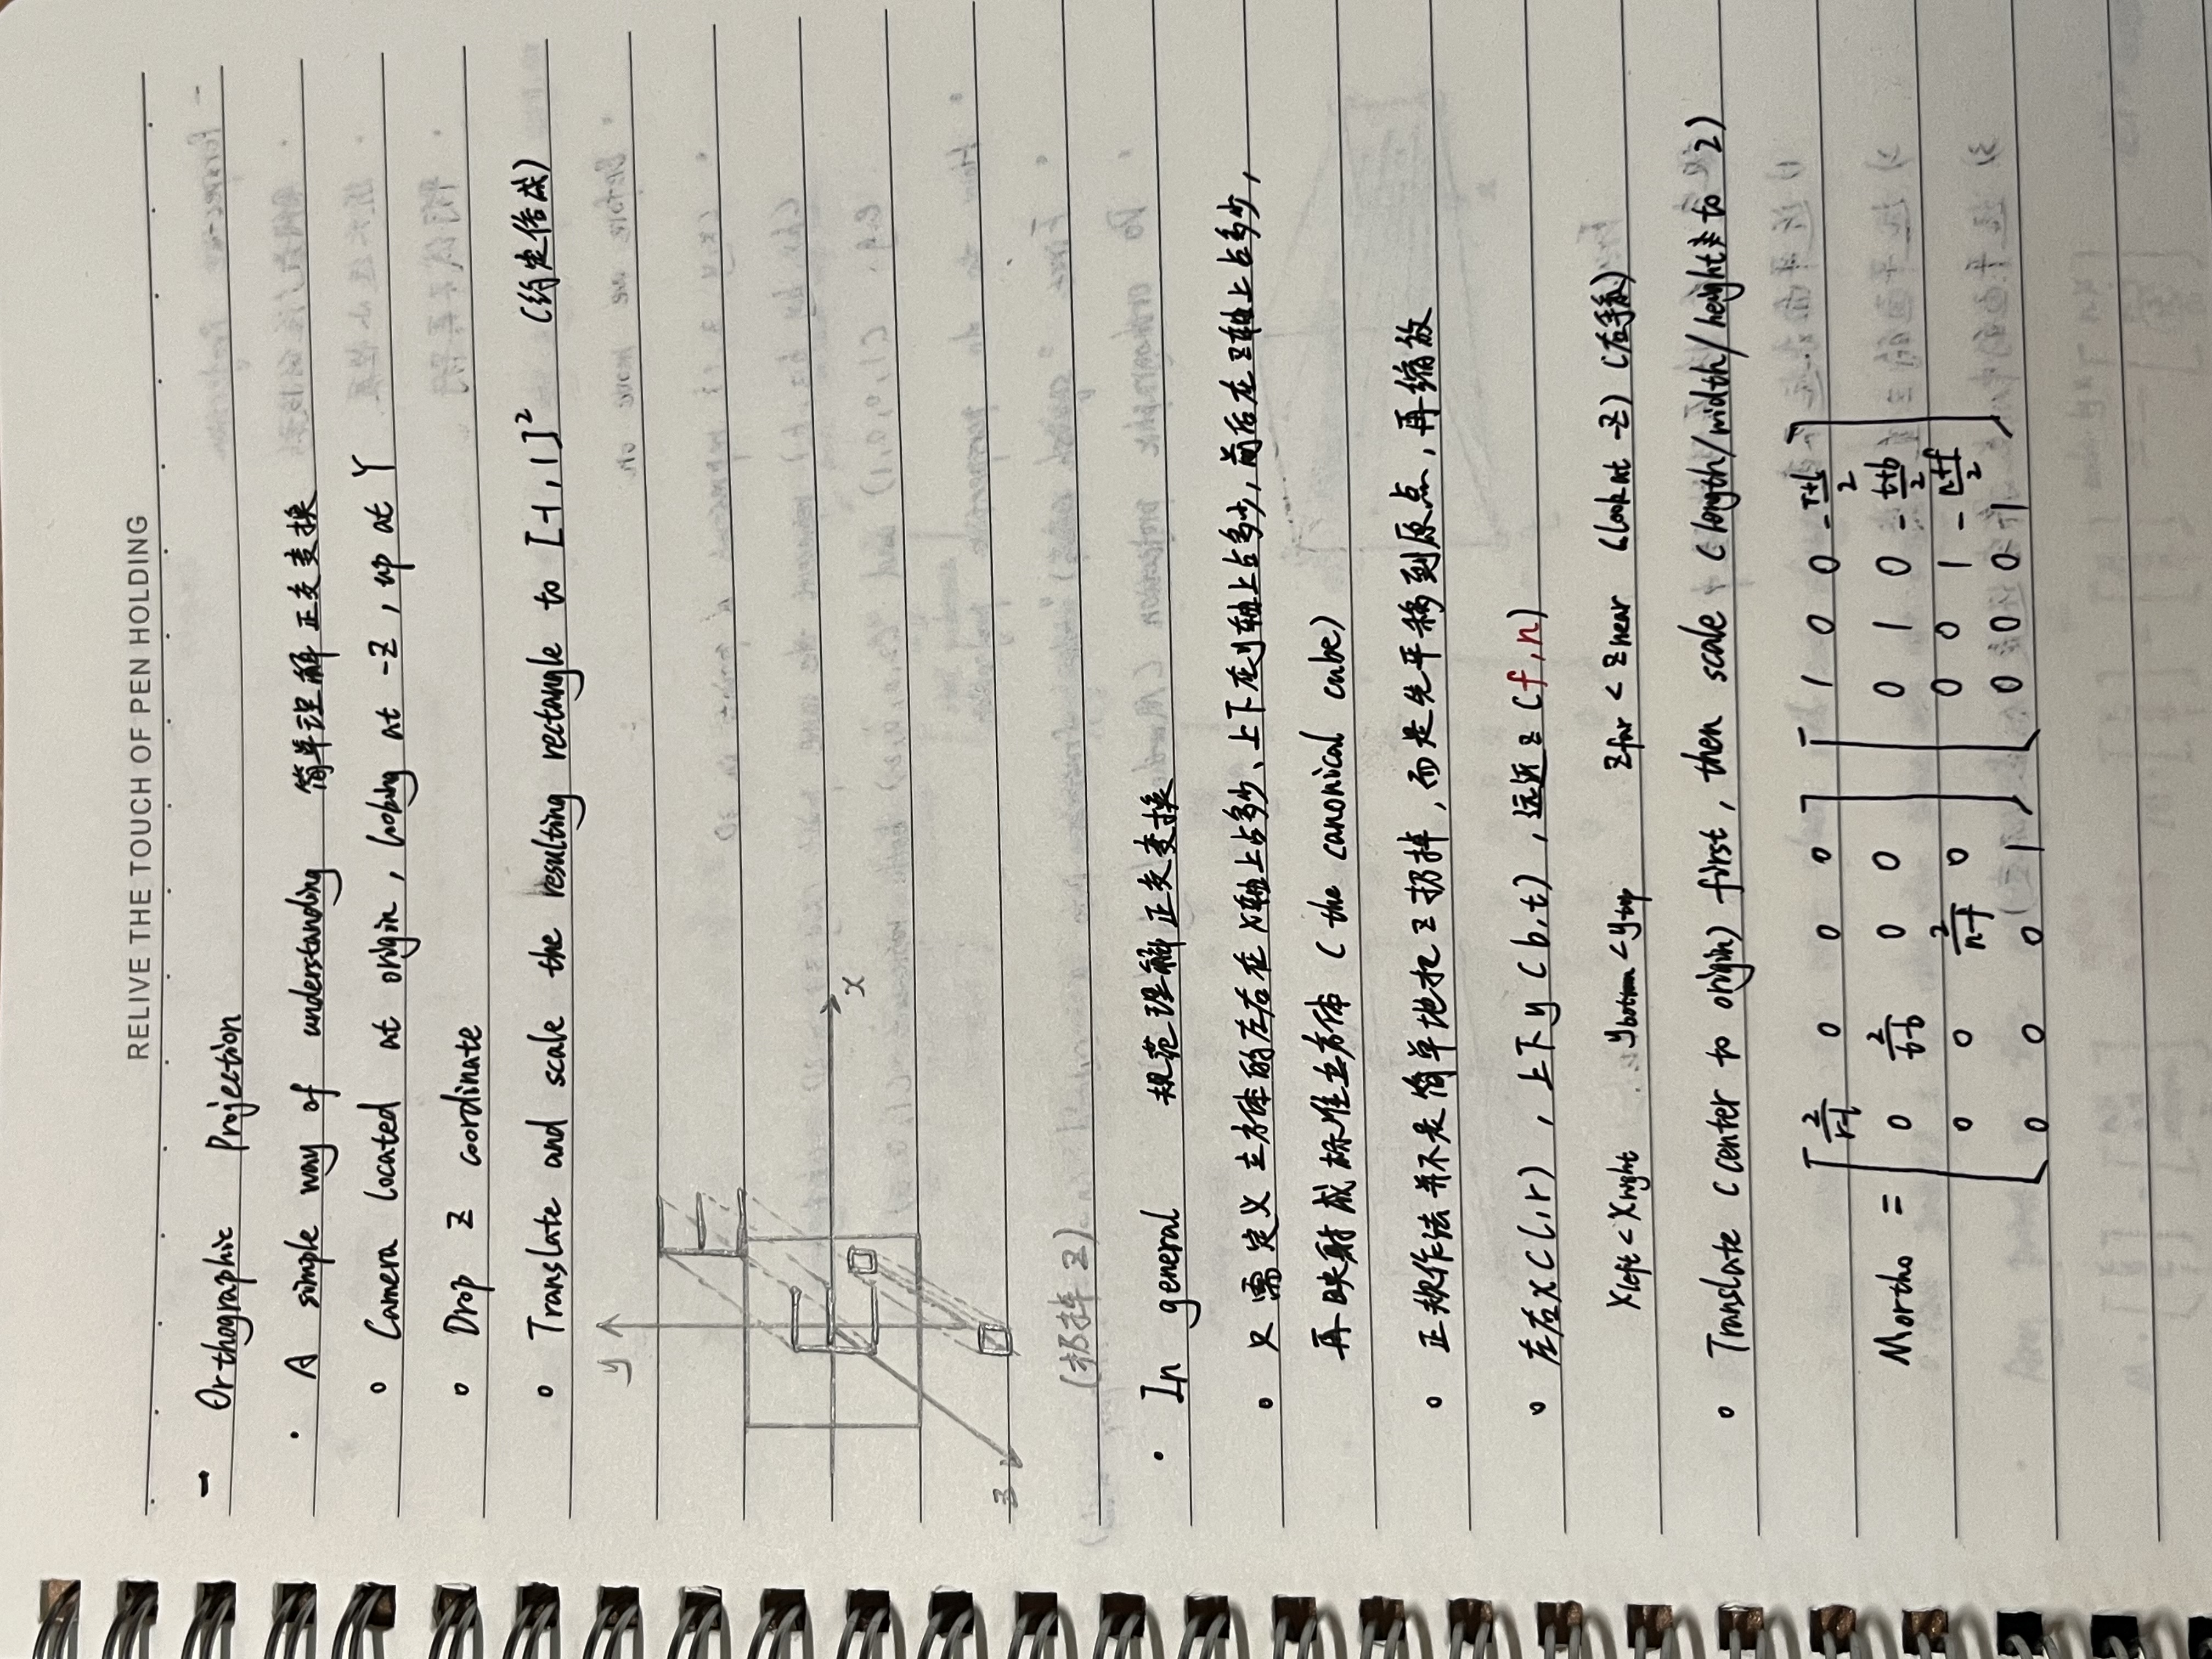 RELIVE THE TOUCH OF PEN HOLDING
- Orthographic Projection
· A simple way of understanding 简单理解正交变换
o Camera located at origin, looking at -Z, up at Y
o Drop Z coordinate
o Translate and scale the resulting rectangle to [-1, 1]² (约定俗成)
y
x
z
(扔掉 z)
· In general 规范理解正交变换
o 只需定义立方体的左右在x轴上占多少、上下在y轴上占多少,前后在z轴上占多少,
再映射成标准立方体 (the canonical cube)
o 正规作法并不是简单地把z扔掉,而是先平移到原点,再缩放
o 左右x(l,r), 上下y(b,t), 远近z(f,n)
xleft < xright ybottom < ytop zfar < znear (look at -Z) (右手系)
o Translate (center to origin) first, then scale (length/width/height to 2)
Mortho = [2/(r-l) 0 0 0] [1 0 0 -(r+l)/2]
[0 2/(t-b) 0 0] [0 1 0 -(t+b)/2]
[0 0 2/(n-f) 0] [0 0 1 -(n+f)/2]
[0 0 0 1] [0 0 0 1]